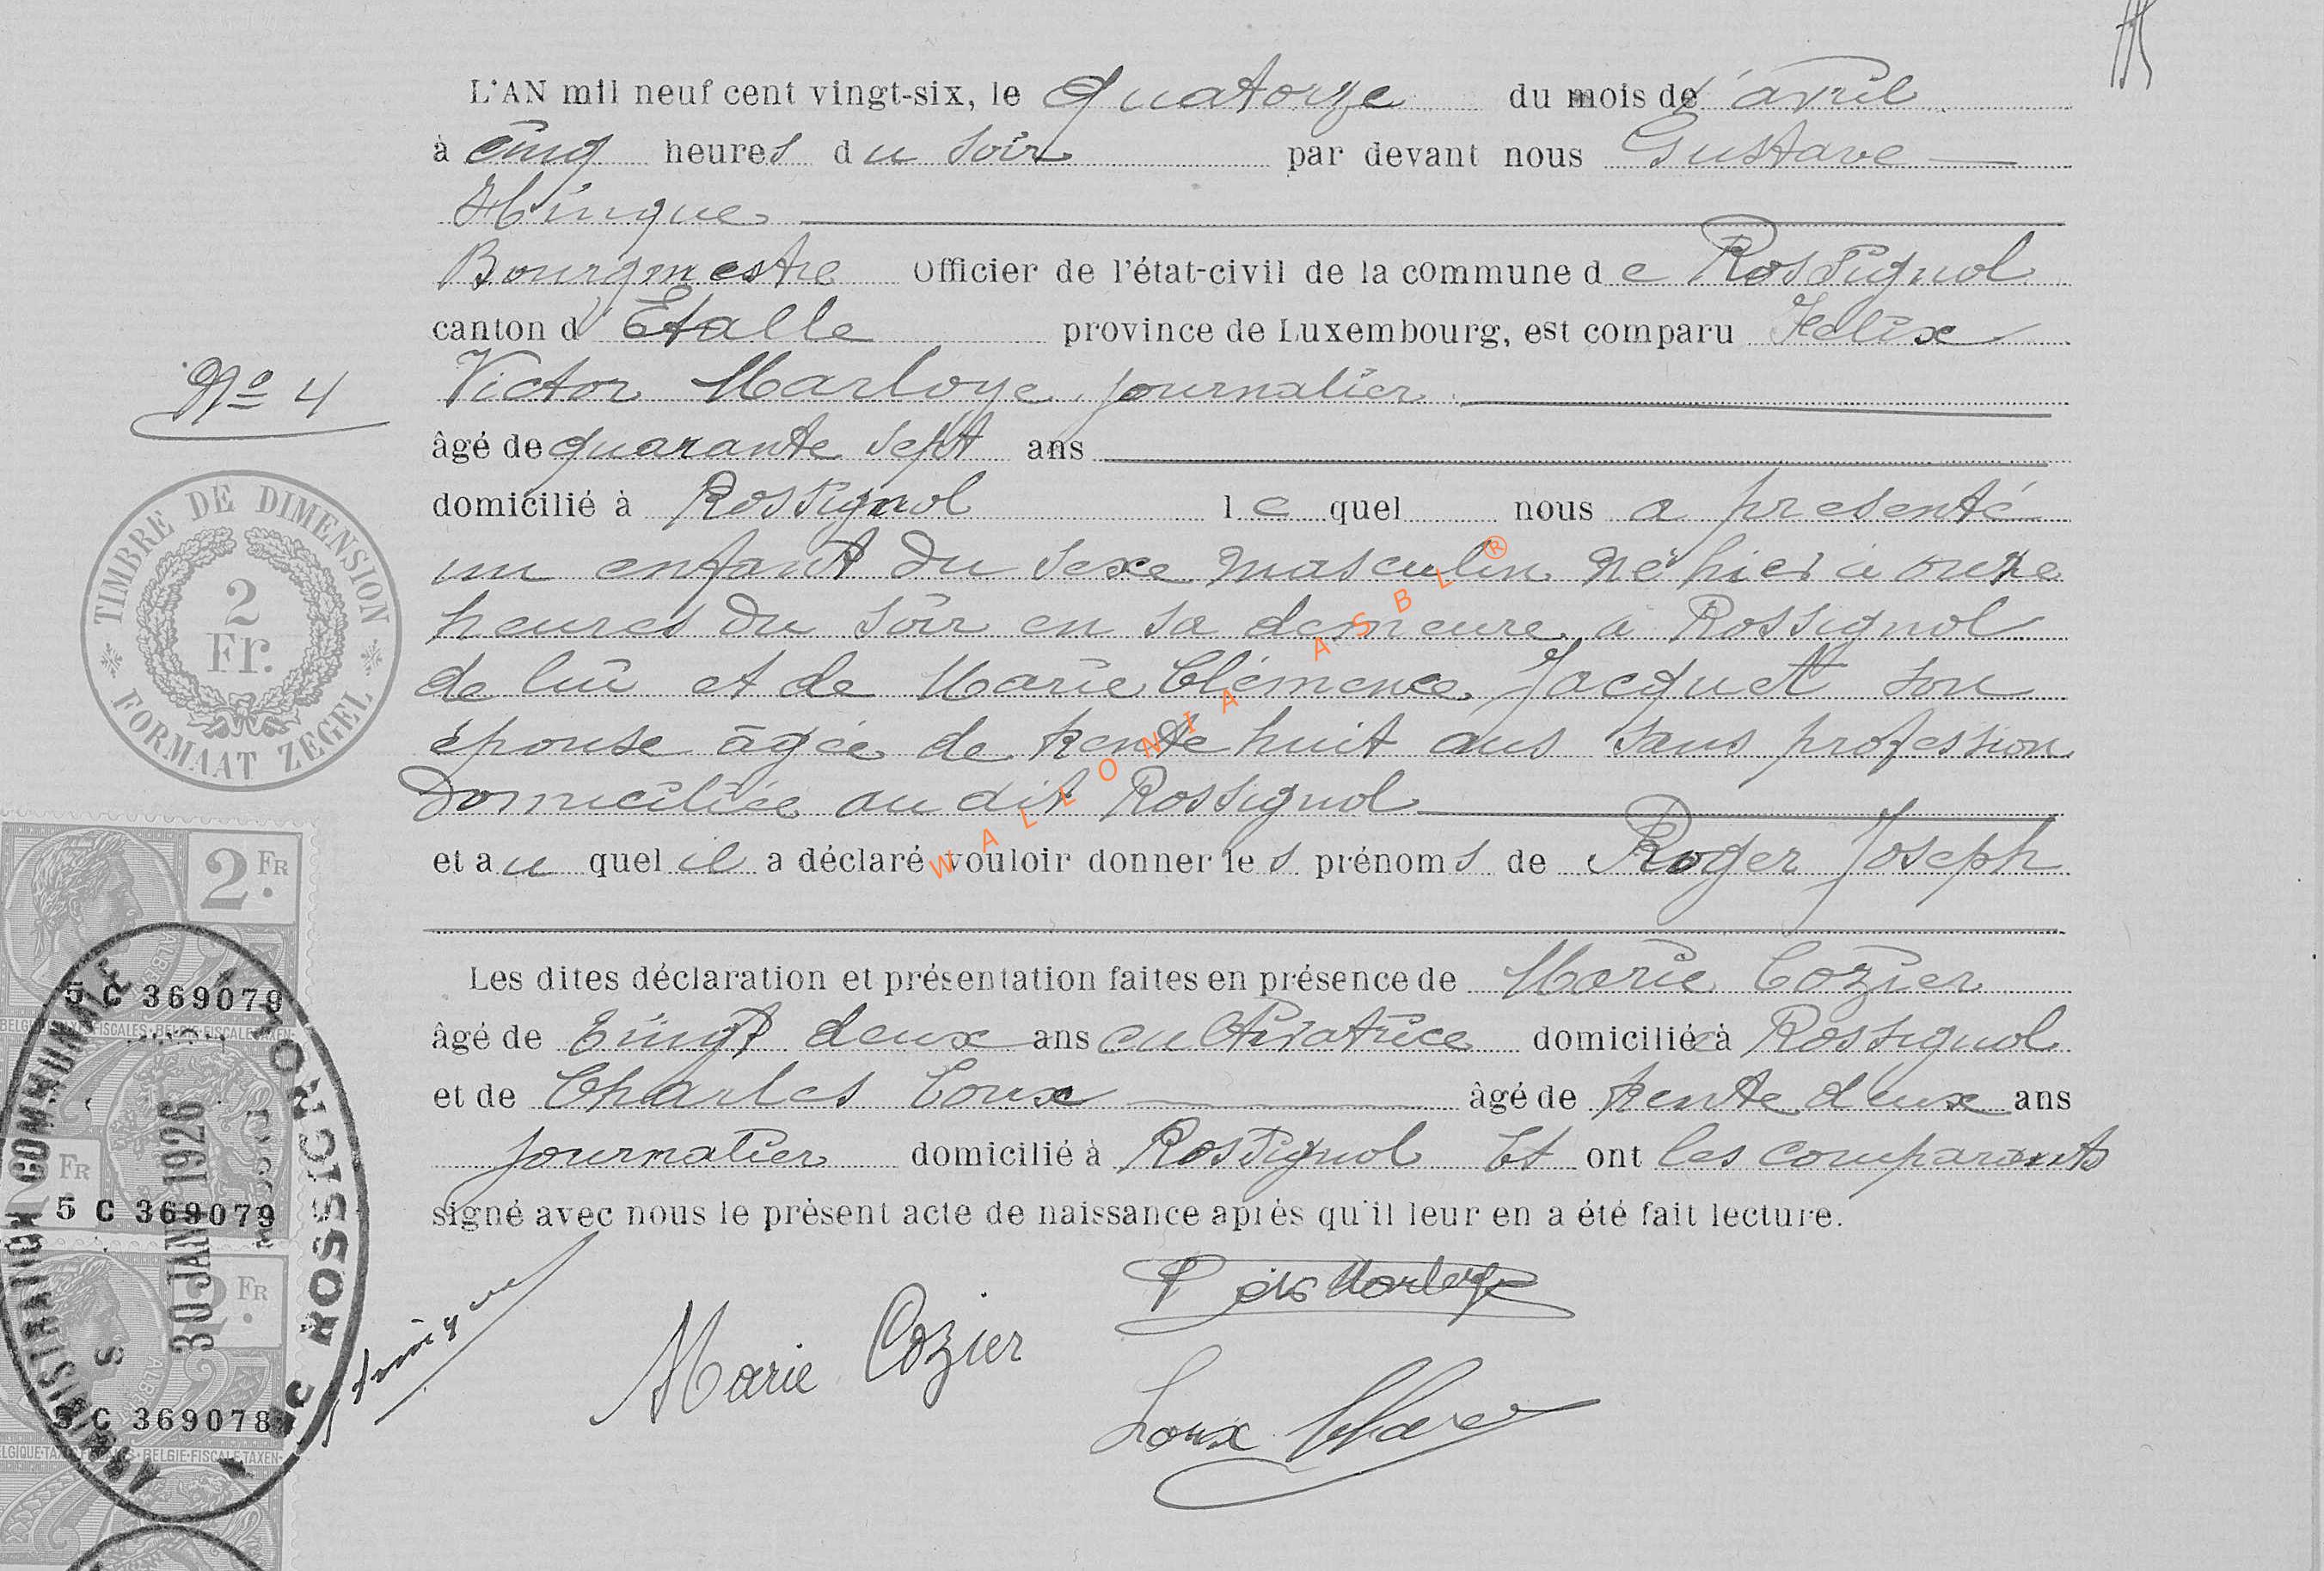 L'AN mil neuf cent vingt-six, le quatorze du mois de avril
à cinq heures du soir par devant nous Gustave
Hinque
Bourgmestre Officier de l'état-civil de la commune de Rossignol
canton d'Etalle province de Luxembourg, est comparu Félix
Victor Marloye journalier
N° 4
âgé de quarante sept ans
domicilié à Rossignol lequel nous a presenté
un enfant du sexe masculin né hier à onze
heures du soir en sa demeure a Rossignol
de lui et de Marie Clémence Jacquet son
épouse âgée de trente huit ans sans profession
domiciliée au dit Rossignol
et au quel il a déclaré vouloir donner les prénoms de Roger Joseph
Les dites déclaration et présentation faites en présence de Marie Cozier
âgé de Vingt deux ans cultivatrice domiciliée à Rossignol
et de Charles Loux âgé de trente deux ans
journalier domicilié à Rossignol Et ont les comparants
signé avec nous le présent acte de naissance après qu'il leur en a été fait lecture.
Marie Cozier
Loux
TIMBRE DE DIMENSION
2
Fr.
FORMAAT ZEGEL
2 FR
5 C 369079
FR
5 C 369079
2 FR
5 C 369078
ADMINISTRATION COMMUNALE
DE ROSSIGNOL
30 JANV 1926
WALLONIA ASBL ®